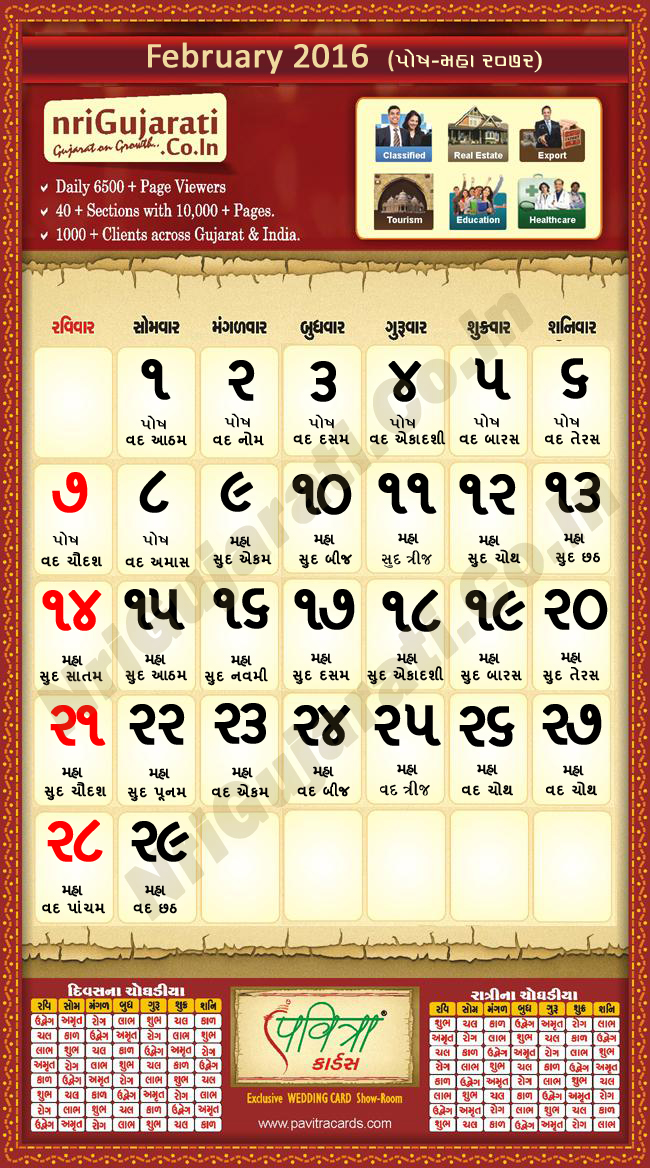 February 2016 (પોષ-મહા ૨૦૭૨)
nriGujarati
Gujarat on Growth..
.Co.In
Daily 6500 + Page Viewers
40 + Sections with 10,000 + Pages.
1000 + Clients across Gujarat & India.
Classified Real Estate Export
Tourism Education Healthcare
રવિવાર સોમવાર મંગળવાર બુધવાર ગુરૂવાર શુક્રવાર શનિવાર
૧ ૨ ૩ ૪ ૫ ૬
પોષ પોષ પોષ પોષ પોષ પોષ
વદ આઠમ વદ નોમ વદ દસમ વદ એકાદશી વદ બારસ વદ તેરસ
૭ ૮ ૯ ૧૦ ૧૧ ૧૨ ૧૩
પોષ પોષ મહા મહા મહા મહા મહા
વદ ચૌદશ વદ અમાસ સુદ એકમ સુદ બીજ સુદ ત્રીજ સુદ ચોથ સુદ છઠ
૧૪ ૧૫ ૧૬ ૧૭ ૧૮ ૧૯ ૨૦
મહા મહા મહા મહા મહા મહા મહા
સુદ સાતમ સુદ આઠમ સુદ નવમી સુદ દસમ સુદ એકાદશી સુદ બારસ સુદ તેરસ
૨૧ ૨૨ ૨૩ ૨૪ ૨૫ ૨૬ ૨૭
મહા મહા મહા મહા મહા મહા મહા
સુદ ચૌદશ સુદ પૂનમ વદ એકમ વદ બીજ વદ ત્રીજ વદ ચોથ વદ ચોથ
૨૮ ૨૯
મહા મહા
વદ પાંચમ વદ છઠ
NriGujarati.co.in
NriGujarati.co.in
દિવસના ચોઘડીયા
રવિ સોમ મંગળ બુધ ગુરૂ શુક્ર શનિ
ઉદ્વેગ અમૃત રોગ લાભ શુભ ચલ કાળ
ચલ કાળ ઉદ્વેગ અમૃત રોગ લાભ શુભ
લાભ શુભ ચલ કાળ ઉદ્વેગ અમૃત રોગ
અમૃત રોગ લાભ શુભ ચલ કાળ ઉદ્વેગ
કાળ ઉદ્વેગ અમૃત રોગ લાભ શુભ ચલ
શુભ ચલ કાળ ઉદ્વેગ અમૃત રોગ લાભ
રોગ લાભ શુભ ચલ કાળ ઉદ્વેગ અમૃત
ઉદ્વેગ અમૃત રોગ લાભ શુભ ચલ કાળ
પવિત્રા®
કાર્ડસ
Exclusive WEDDING CARD Show-Room
www.pavitracards.com
રાત્રીના ચોઘડીયા
રવિ સોમ મંગળ બુધ ગુરૂ શુક્ર શનિ
શુભ ચલ કાળ ઉદ્વેગ અમૃત રોગ લાભ
અમૃત રોગ લાભ શુભ ચલ કાળ ઉદ્વેગ
ચલ કાળ ઉદ્વેગ અમૃત રોગ લાભ શુભ
રોગ લાભ શુભ ચલ કાળ ઉદ્વેગ અમૃત
કાળ ઉદ્વેગ અમૃત રોગ લાભ શુભ ચલ
લાભ શુભ ચલ કાળ ઉદ્વેગ અમૃત રોગ
ઉદ્વેગ અમૃત રોગ લાભ શુભ ચલ કાળ
શુભ ચલ કાળ ઉદ્વેગ અમૃત રોગ લાભ